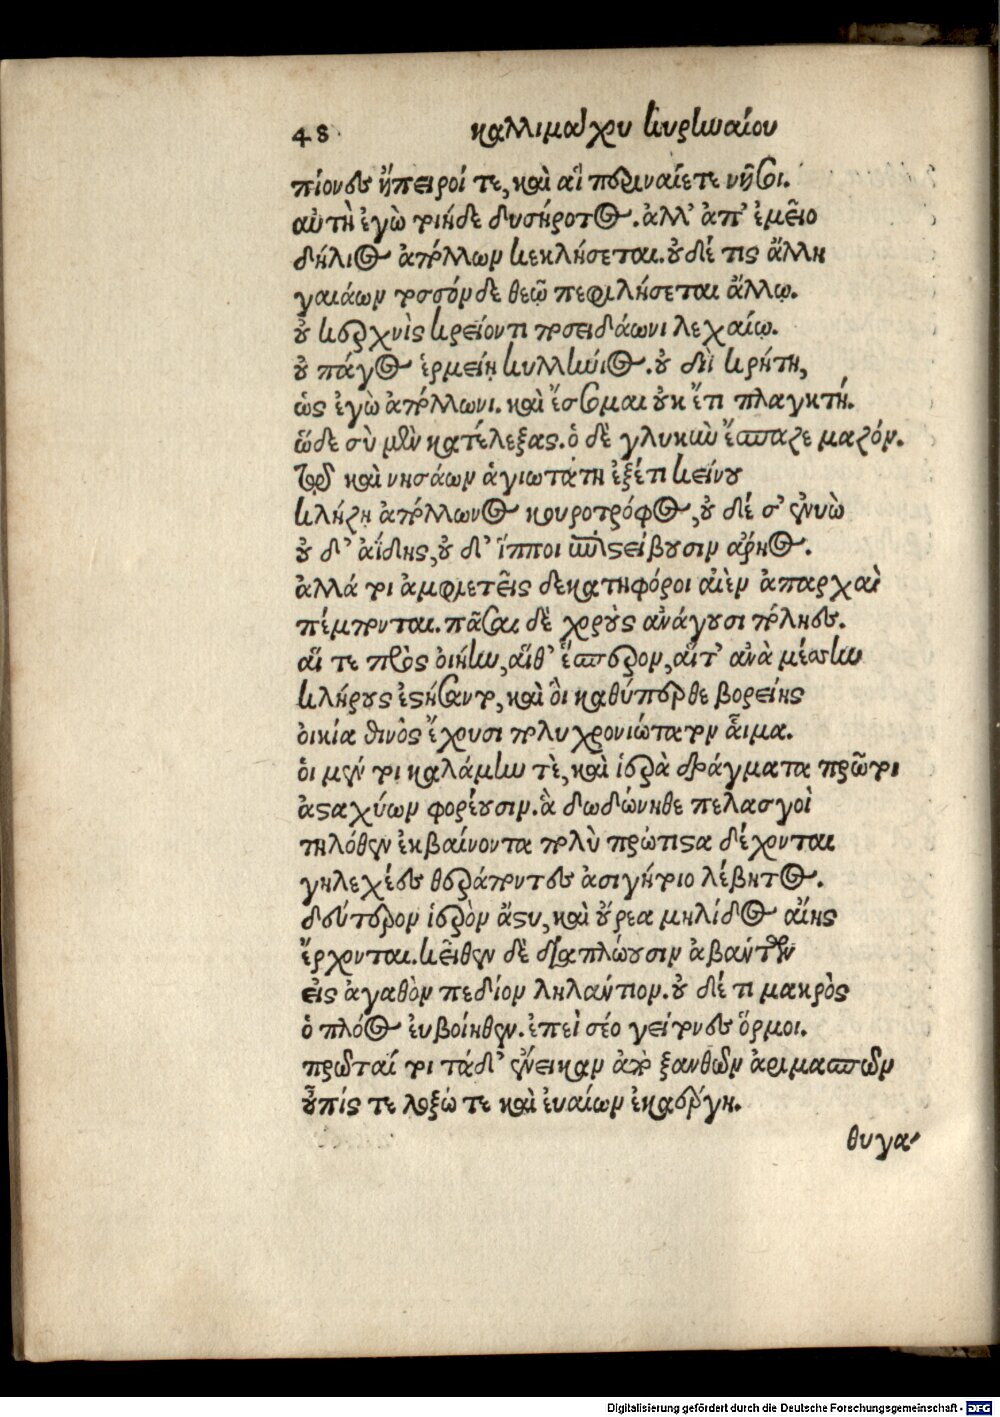 48 καλλιμάχου κυρηναίου
πίονες ἤπειροί τε, καὶ αἳ περιναίετε νῆσοι.
αὐτὴ ἐγὼ τοιήδε δυσήροτος. ἀλλ' ἀπ' ἐμεῖο
δήλιος ἀπόλλων κεκλήσεται. οὐδέ τις ἄλλη
γαιάων τοσσόνδε θεῷ πεφιλήσεται ἄλλῳ.
οὐ κερχνὶς κρείοντι ποσειδάωνι λεχαίῳ.
οὐ πάγος ἑρμείῃ κυλλήνιος. οὐ διὶ κρήτη,
ὡς ἐγὼ ἀπόλλωνι. καὶ ἔσομαι οὐκ ἔτι πλαγκτή.
ὧδε σὺ μὲν κατέλεξας. ὁ δὲ γλυκὺν ἔσπασε μαζόν.
τῷ καὶ νησάων ἁγιωτάτη ἐξέτι κείνου
κλήζῃ ἀπόλλωνος κουροτρόφος, οὐδέ σ' ἐνυὼ
οὐδ' ἀΐδης, οὐδ' ἵπποι ἐπιστείβουσιν ἄρηος.
ἀλλά τοι ἀμφιετεῖς δεκατηφόροι αἰὲν ἀπαρχαὶ
πέμπονται. πᾶσαι δὲ χοροὺς ἀνάγουσι πόληες.
αἵ τε πρὸς ἠοίην, αἵθ' ἕσπερον, αἵτ' ἀνὰ μέσσην
κλήρους ἐστήσαντο, καὶ οἳ καθύπερθε βορείης
οἰκία θινὸς ἔχουσι πολυχρονιώτατον αἷμα.
οἱ μέν τοι καλάμην τὲ, καὶ ἱερὰ δράγματα πρῶτοι
ἀσταχύων φορέουσιν. ἃ δωδώνηθε πελασγοὶ
τηλόθεν ἐκβαίνοντα πολὺ πρώτιστα δέχονται
γηλεχέες θεράποντες ἀσιγήτοιο λέβητος.
δεύτερον ἱερὸν ἄστυ, καὶ οὔρεα μηλίδος αἴης
ἔρχονται. κεῖθεν δὲ διαπλώουσιν ἀβάντων
εἰς ἀγαθὸν πεδίον ληλάντιον. οὐδέ τι μακρὸς
ὁ πλόος εὐβοίηθεν. ἐπεὶ σέο γείτονες ὅρμοι.
πρῶταί τοι τάδ' ἔνεικαν ἀπὸ ξανθῶν ἀριμασπῶν
οὖπίς τε λοξώ τε καὶ εὐαίων ἑκαέργη.
θυγα-
Digitalisierung gefördert durch die Deutsche Forschungsgemeinschaft - DFG